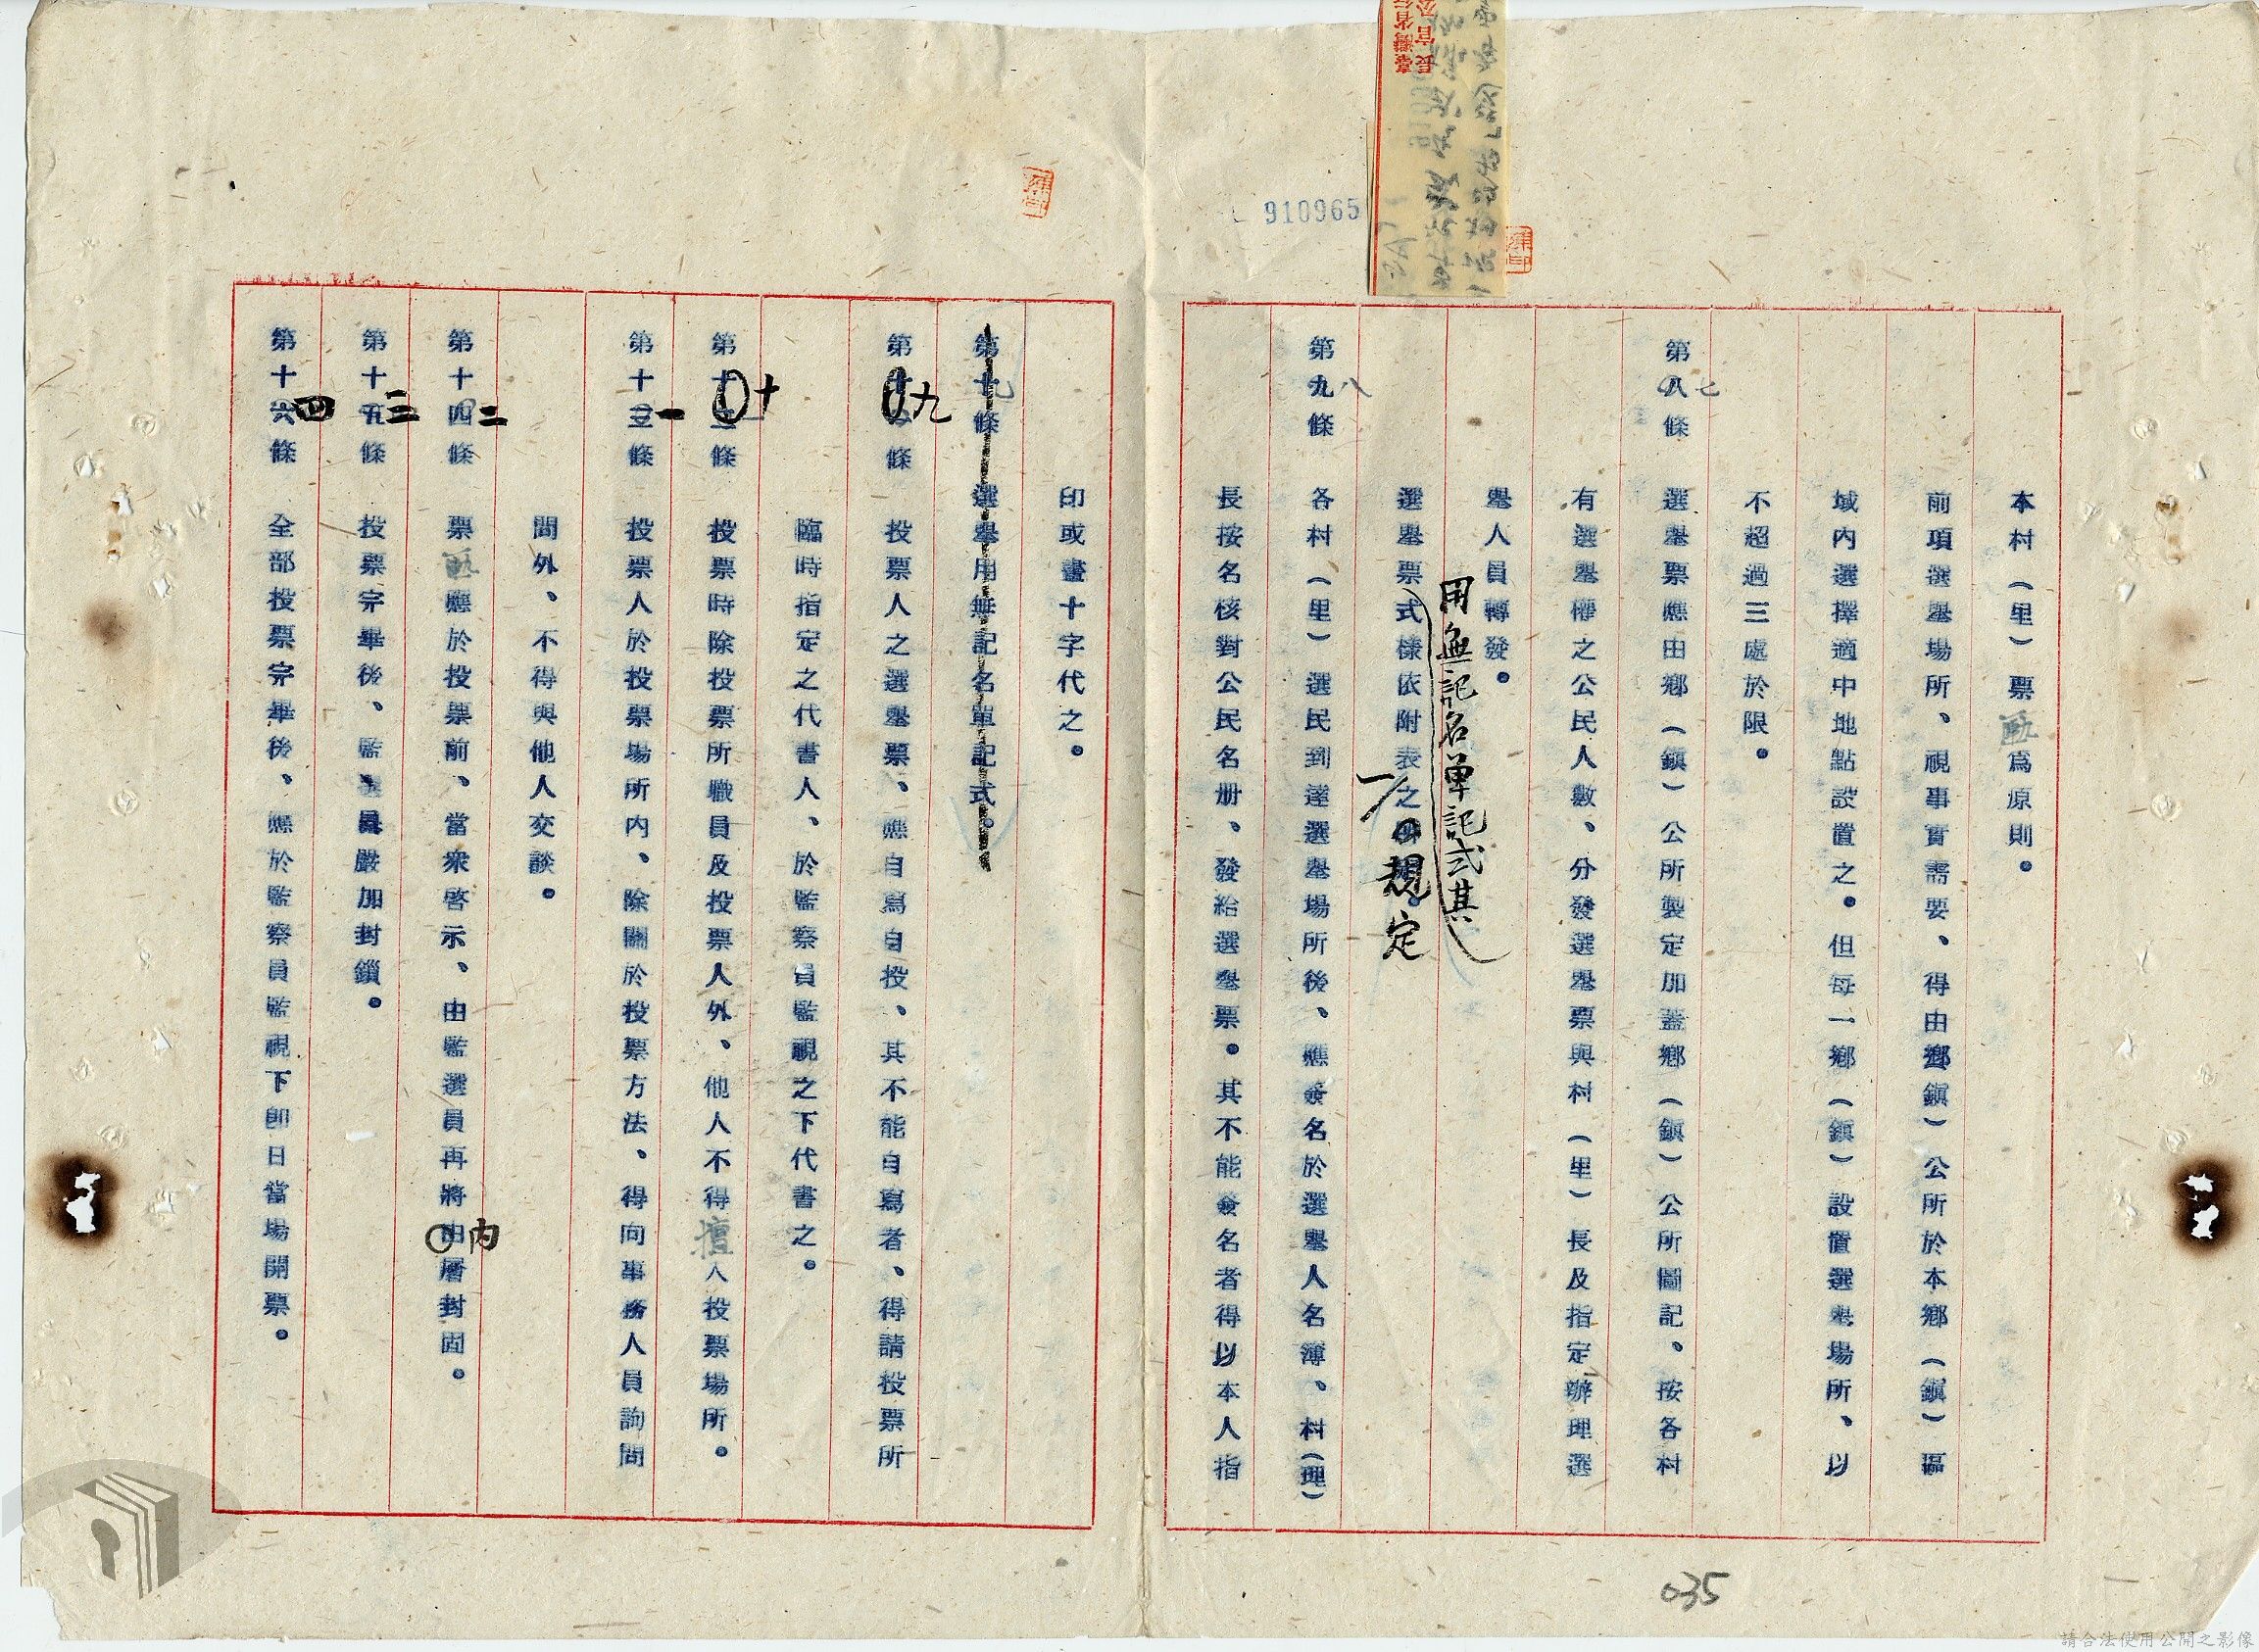 910965
臺灣省行
長官公
本村（里）票匭爲原則。
前項選舉場所、視事實需要、得由鄉鎮）公所於本鄉（鎮）區
域內選擇適中地點設置之。但每一鄉（鎮）設置選舉場所、以
不超過三處於限。
第八條 七 選舉票應由鄉（鎮）公所製定加蓋鄉（鎮）公所圖記、按各村
有選舉權之公民人數、分發選舉票與村（里）長及指定辦理選
舉人員轉發。
用無記名單記式其
選舉票式樣依附表之
一 規定
第九條 八 各村（里）選民到達選舉場所後、應簽名於選舉人名簿、村（理）
長按名核對公民名册、發給選舉票。其不能簽名者得以本人指
印或畫十字代之。
第十條 九 選舉用無記名單記式。
第十一條 九 投票人之選舉票、應自寫自投、其不能自寫者、得請投票所
臨時指定之代書人、於監察員監視之下代書之。
第十二條 十 投票時除投票所職員及投票人外、他人不得擅入投票場所。
第十三條 一 投票人於投票場所內、除關於投票方法、得向事務人員詢問
間外、不得與他人交談。
第十四條 二 票匭應於投票前、當衆啓示、由監選員再將由層封固。
內
第十五條 三 投票完畢後、監選員嚴加封鎖。
第十六條 四 全部投票完畢後、應於監察員監視下卽日當場開票。
035
請合法使用公開之影像